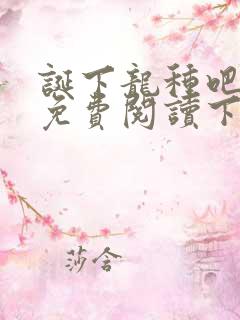 誕下龍種吧
免費閱讀下
莎含